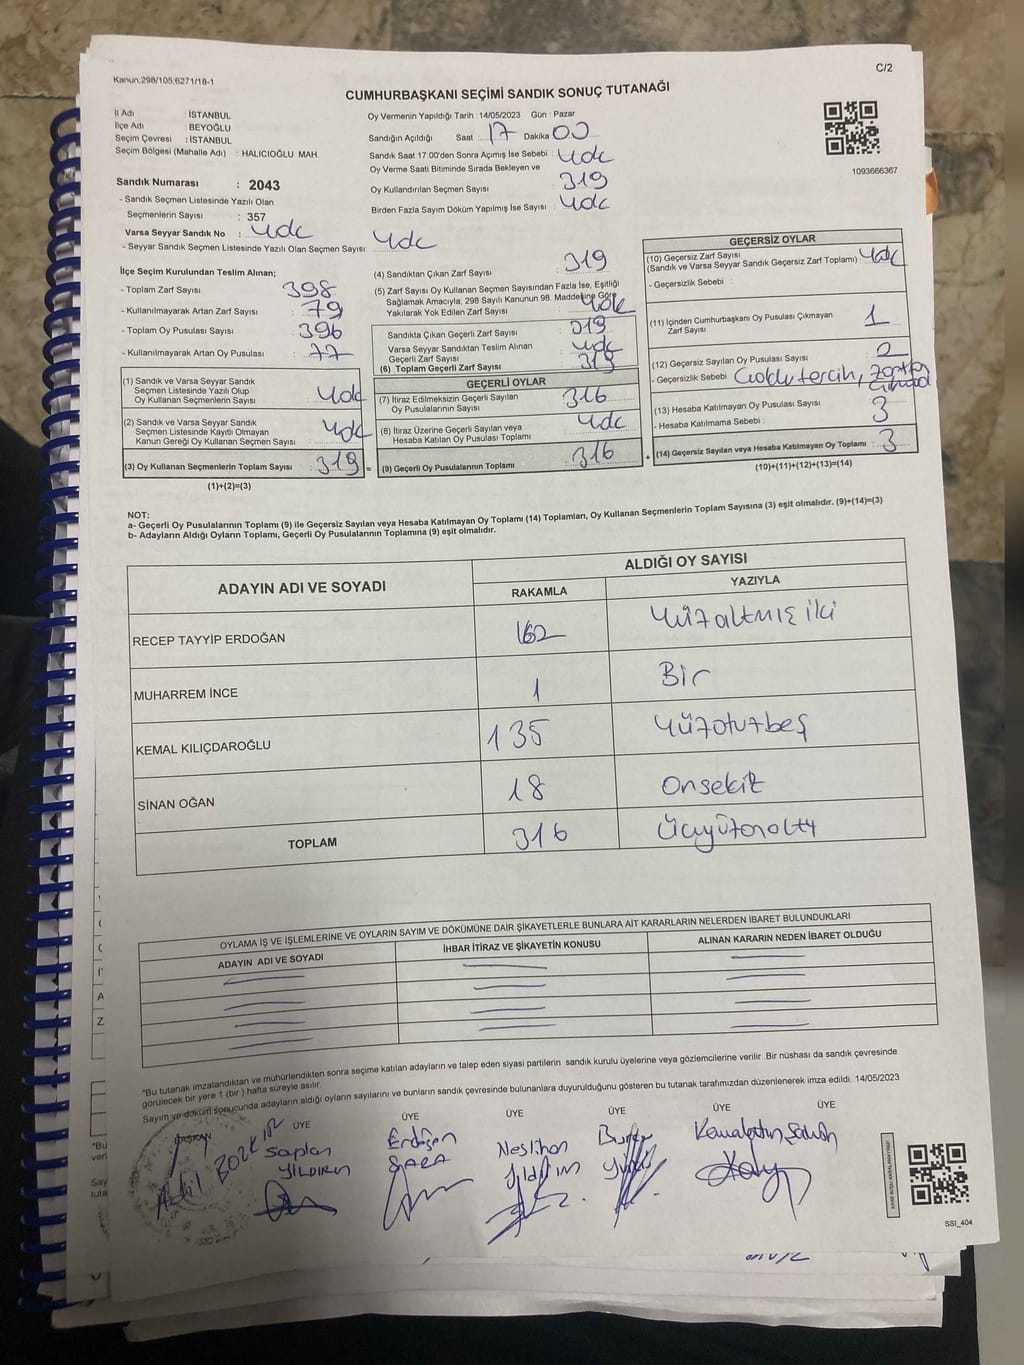 Kanun;298/105,6271/18-1
C/2
CUMHURBAŞKANI SEÇİMİ SANDIK SONUÇ TUTANAĞI
İl Adı : İSTANBUL
İlçe Adı : BEYOĞLU
Seçim Çevresi : İSTANBUL
Seçim Bölgesi (Mahalle Adı) : HALICIOĞLU MAH.
Sandık Numarası : 2043
- Sandık Seçmen Listesinde Yazılı Olan
Seçmenlerin Sayısı : 357
Varsa Seyyar Sandık No : Yok
- Seyyar Sandık Seçmen Listesinde Yazılı Olan Seçmen Sayısı Yok
Oy Vermenin Yapıldığı Tarih : 14/05/2023 Gün : Pazar
Sandığın Açıldığı Saat 17 Dakika 00
Sandık Saat 17:00'den Sonra Açımış İse Sebebi : Yok
Oy Verme Saati Bitiminde Sırada Bekleyen ve
Oy Kullandırılan Seçmen Sayısı 319
Birden Fazla Sayım Döküm Yapılmış İse Sayısı : Yok
1093666367
İlçe Seçim Kurulundan Teslim Alınan;
- Toplam Zarf Sayısı : 398
- Kullanılmayarak Artan Zarf Sayısı : 79
- Toplam Oy Pusulası Sayısı : 396
- Kullanılmayarak Artan Oy Pusulası : 77
(1) Sandık ve Varsa Seyyar Sandık
Seçmen Listesinde Yazılı Olup
Oy Kullanan Seçmenlerin Sayısı Yok
(2) Sandık ve Varsa Seyyar Sandık
Seçmen Listesinde Kayıtlı Olmayan
Kanun Gereği Oy Kullanan Seçmen Sayısı Yok
(3) Oy Kullanan Seçmenlerin Toplam Sayısı 319 =
(1)+(2)=(3)
(4) Sandıktan Çıkan Zarf Sayısı 319
(5) Zarf Sayısı Oy Kullanan Seçmen Sayısından Fazla İse, Eşitliği
Sağlamak Amacıyla; 298 Sayılı Kanunun 98. Maddesine Göre
Yakılarak Yok Edilen Zarf Sayısı : Yok
Sandıkta Çıkan Geçerli Zarf Sayısı : 319
Varsa Seyyar Sandıktan Teslim Alınan
Geçerli Zarf Sayısı : Yok
(6) Toplam Geçerli Zarf Sayısı 319
GEÇERLİ OYLAR
(7) İtiraz Edilmeksizin Geçerli Sayılan
Oy Pusulalarının Sayısı 316
(8) İtiraz Üzerine Geçerli Sayılan veya
Hesaba Katılan Oy Pusulası Toplamı Yok
(9) Geçerli Oy Pusulalarının Toplamı 316 +
GEÇERSİZ OYLAR
(10) Geçersiz Zarf Sayısı
(Sandık ve Varsa Seyyar Sandık Geçersiz Zarf Toplamı) Yok
- Geçersizlik Sebebi :
(11) İçinden Cumhurbaşkanı Oy Pusulası Çıkmayan
Zarf Sayısı 1
(12) Geçersiz Sayılan Oy Pusulası Sayısı 2
- Geçersizlik Sebebi : Çoklu tercih,
(13) Hesaba Katılmayan Oy Pusulası Sayısı 3
- Hesaba Katılmama Sebebi :
(14) Geçersiz Sayılan veya Hesaba Katılmayan Oy Toplamı : 3
(10)+(11)+(12)+(13)=(14)
NOT:
a- Geçerli Oy Pusulalarının Toplamı (9) ile Geçersiz Sayılan veya Hesaba Katılmayan Oy Toplamı (14) Toplamları, Oy Kullanan Seçmenlerin Toplam Sayısına (3) eşit olmalıdır. (9)+(14)=(3)
b- Adayların Aldığı Oyların Toplamı, Geçerli Oy Pusulalarının Toplamına (9) eşit olmalıdır.
ADAYIN ADI VE SOYADI
ALDIĞI OY SAYISI
RAKAMLA YAZIYLA
RECEP TAYYİP ERDOĞAN 162 Yüzaltmış iki
MUHARREM İNCE 1 Bir
KEMAL KILIÇDAROĞLU 135 Yüzotuzbeş
SİNAN OĞAN 18 Onsekiz
TOPLAM 316 Üçyüzonaltı
OYLAMA İŞ VE İŞLEMLERİNE VE OYLARIN SAYIM VE DÖKÜMÜNE DAİR ŞİKAYETLERLE BUNLARA AİT KARARLARIN NELERDEN İBARET BULUNDUKLARI
ADAYIN ADI VE SOYADI İHBAR İTİRAZ VE ŞİKAYETİN KONUSU ALINAN KARARIN NEDEN İBARET OLDUĞU
"Bu tutanak imzalandıktan ve mühürlendikten sonra seçime katılan adayların ve talep eden siyasi partilerin sandık kurulu üyelerine ve gözlemcilerine verilir .Bir nüshası da sandık çevresinde
görülecek bir yere 1 (bir ) hafta süreyle asılır.
Sayım ve döküm sonucunda adayların aldığı oyların sayılarını ve bunların sandık çevresinde bulunanlara duyurulduğunu gösteren bu tutanak tarafımızdan düzenlenerek imza edildi. 14/05/2023
BAŞKAN ÜYE ÜYE ÜYE ÜYE ÜYE ÜYE
BOZKIR
YILDIRIM
Erdoğan
KARA
Neslihan
Yıldırım
SSI_404